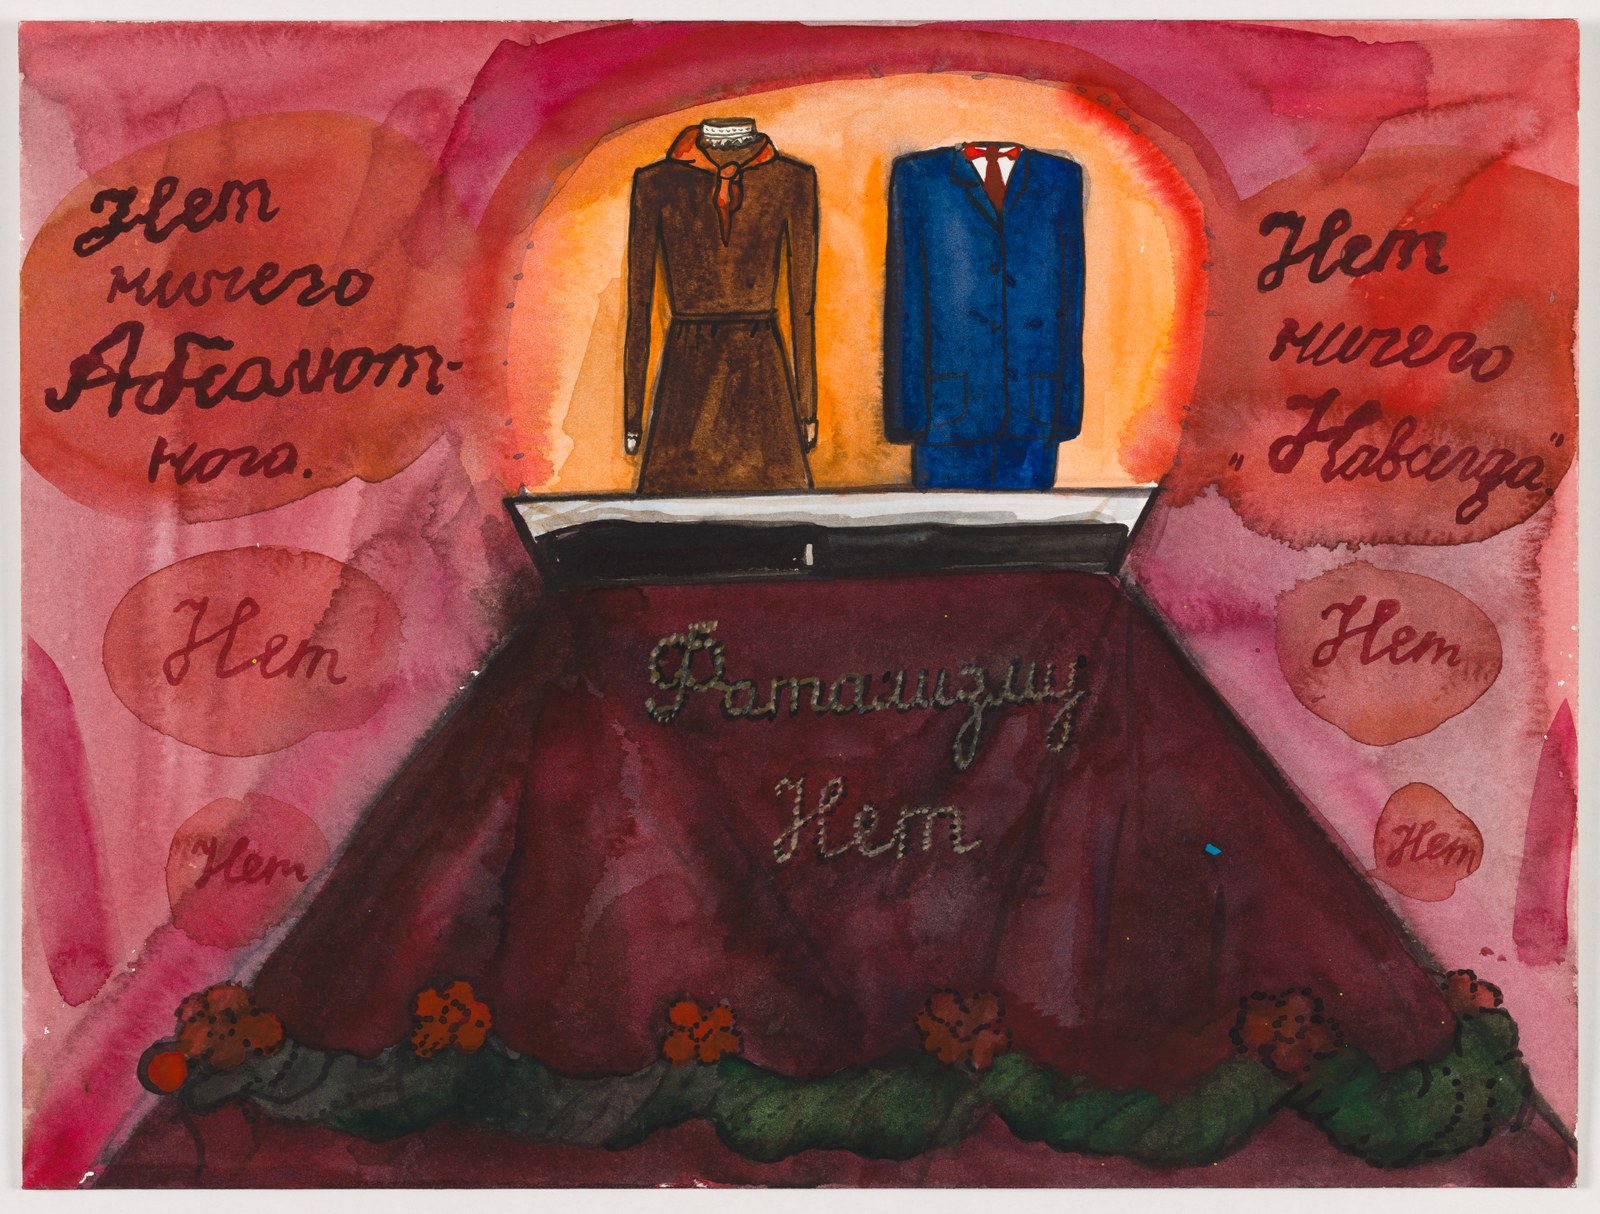 Нет
ничего
Абсолют-
ного.
Нет
ничего
"Навсегда".
Нет
Нет
Нет
Нет
Фатализму
Нет